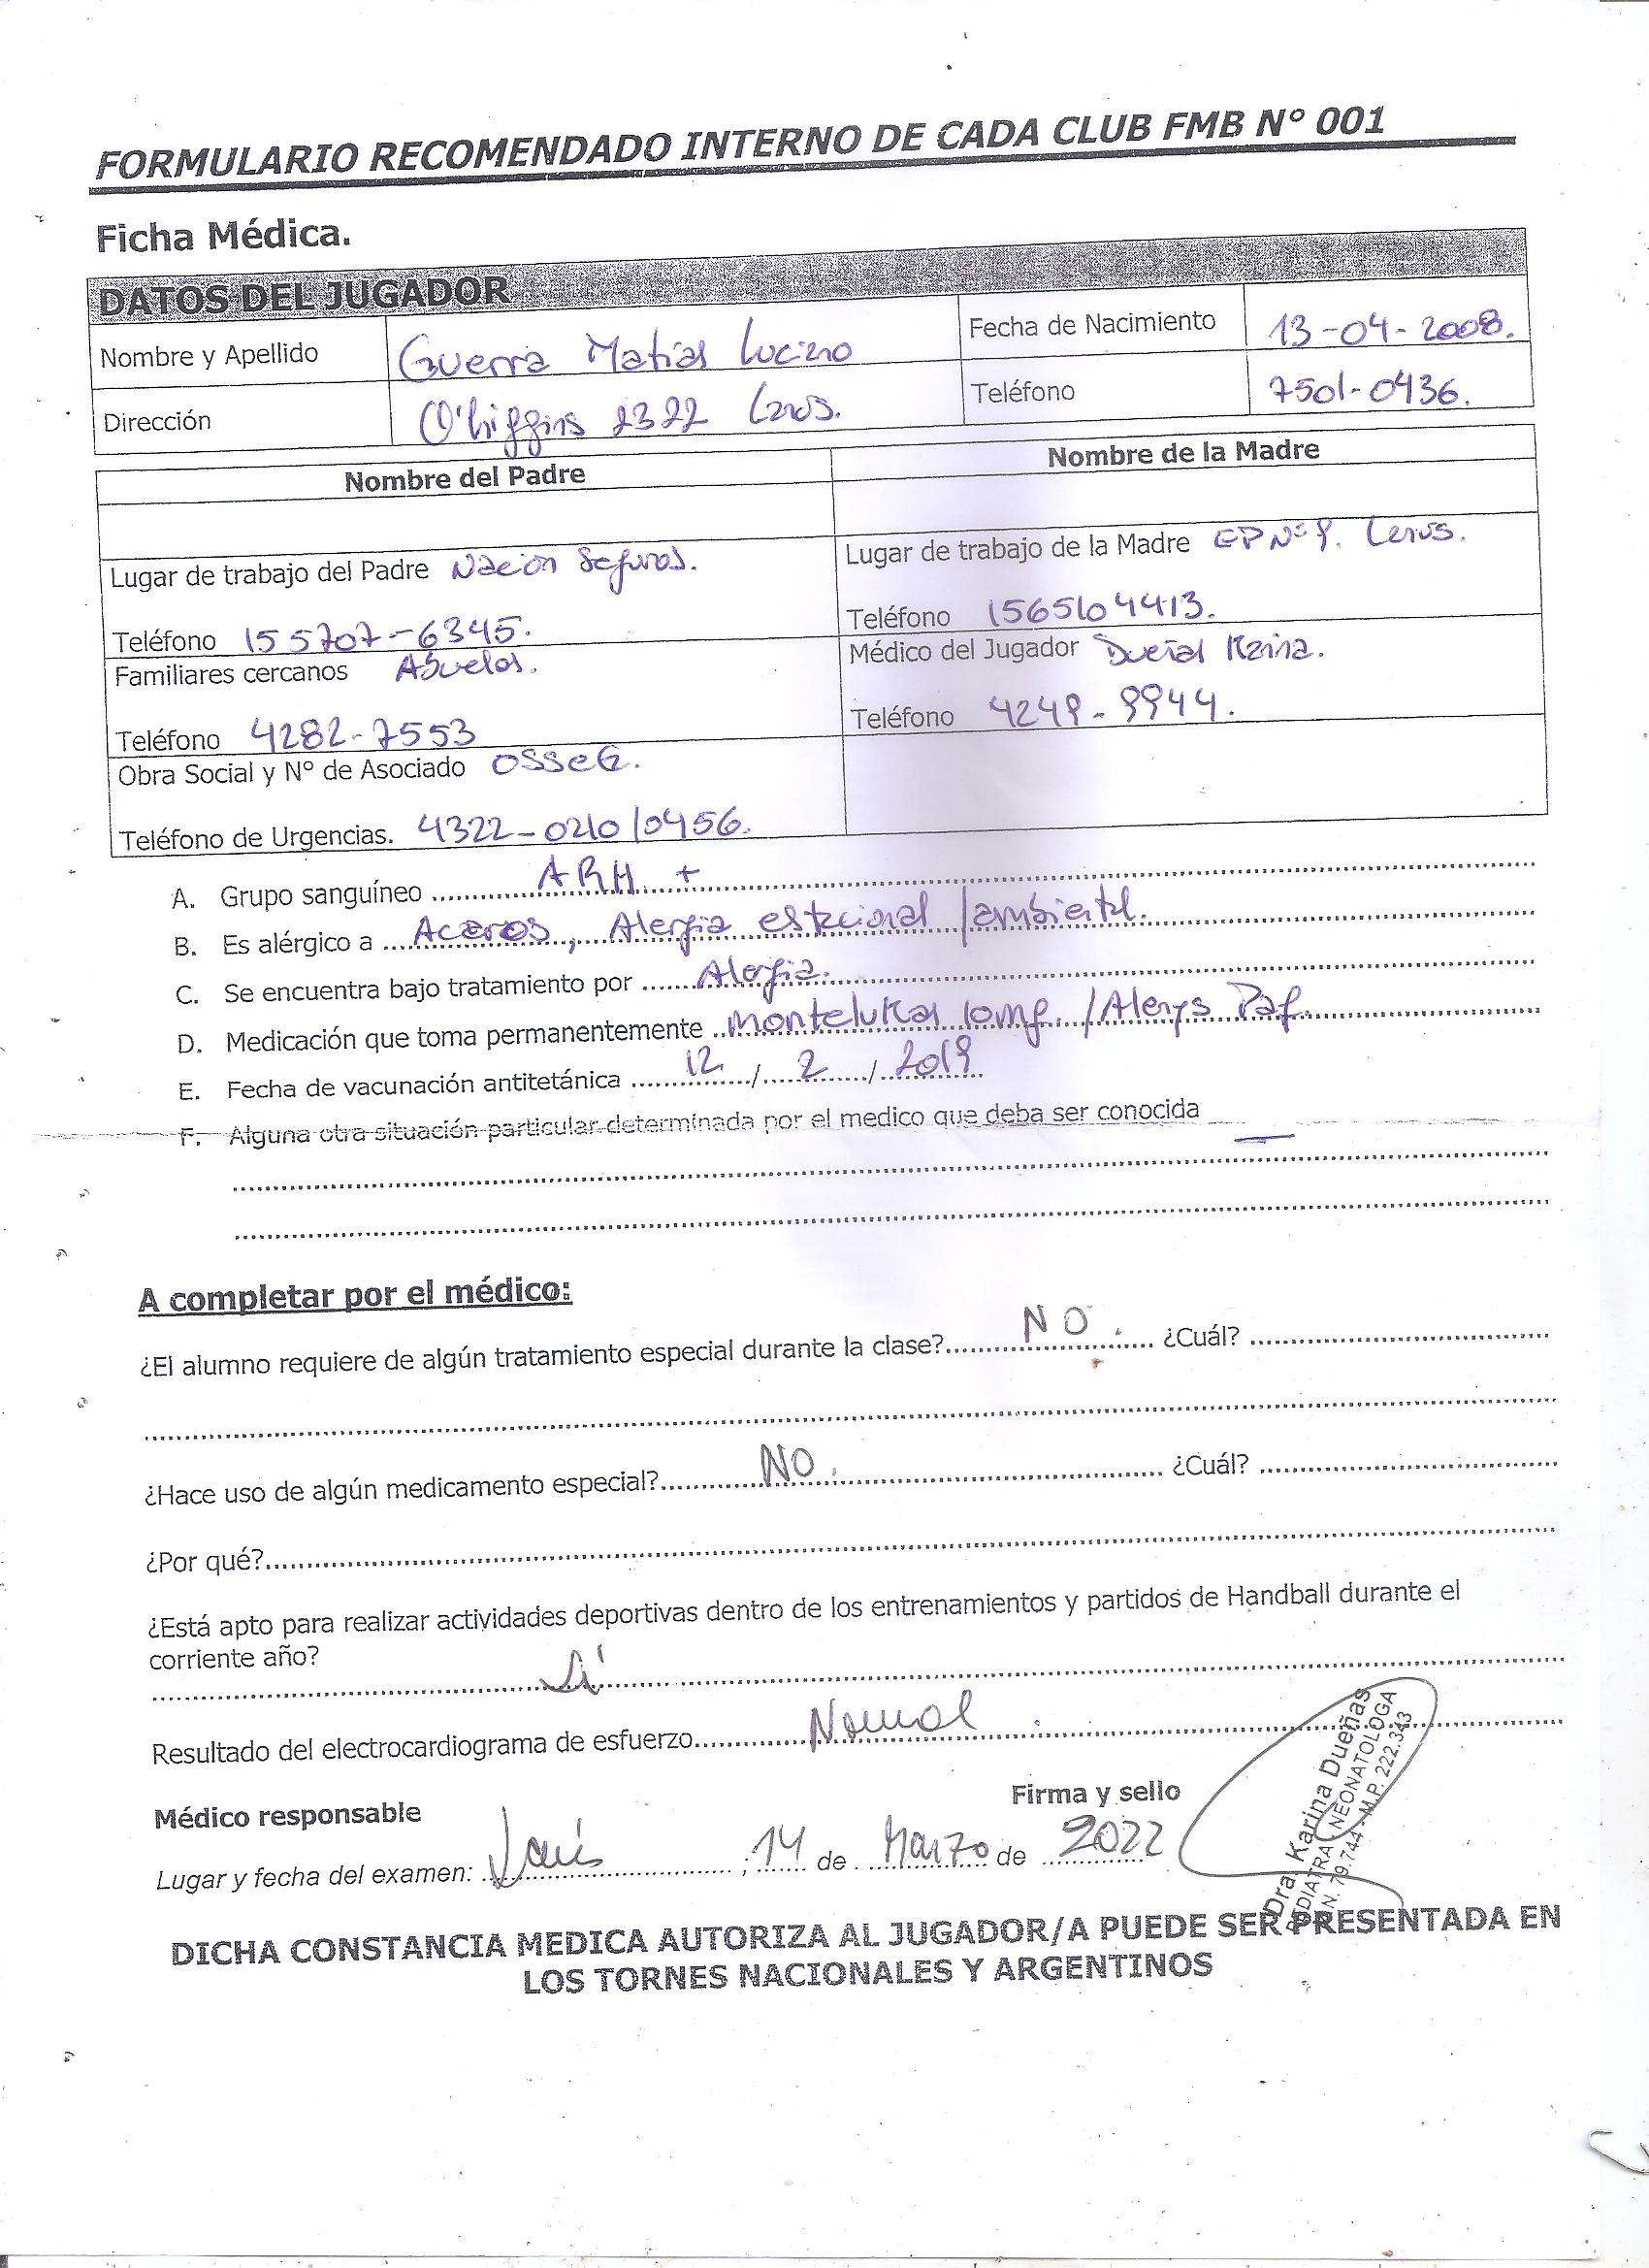 FORMULARIO RECOMENDADO INTERNO DE CADA CLUB FMB N° 001
Ficha Médica.
DATOS DEL JUGADOR
Nombre y Apellido Guerra Matias Luciano
Fecha de Nacimiento 13-04-2008.
Dirección O'higgins 2322 Lanus.
Teléfono 7501-0436.
Nombre del Padre
Nombre de la Madre
Lugar de trabajo del Padre Nación Seguros.
Lugar de trabajo de la Madre EP N° Lanus.
Teléfono 155707-6345.
Teléfono 1565104413.
Familiares cercanos Abuelos.
Médico del Jugador Dueñas Karina.
Teléfono 4282-7553
Teléfono
Obra Social y N° de Asociado OSSEG.
Teléfono de Urgencias. 4322-0210/0456.
A. Grupo sanguíneo A RH +
B. Es alérgico a Acaros, Alergia estacional /ambiental.
C. Se encuentra bajo tratamiento por Alergia.
D. Medicación que toma permanentemente Montelukas 10mg. / Alerys Paf.
E. Fecha de vacunación antitetánica 12 / 2 / 2019
F. Alguna otra situación particular determinada por el medico que deba ser conocida —
A completar por el médico:
¿El alumno requiere de algún tratamiento especial durante la clase? NO. ¿Cuál?
¿Hace uso de algún medicamento especial? NO. ¿Cuál?
¿Por qué?
¿Está apto para realizar actividades deportivas dentro de los entrenamientos y partidos de Handball durante el
corriente año?
Sí
Resultado del electrocardiograma de esfuerzo Normal.
Médico responsable
Firma y sello
Lugar y fecha del examen: Lanús, 14 de Marzo de 2022
Dra. Karina Dueñas
PEDIATRA NEONATOLOGA
M.N. 79.744 - M.P. 222.343
DICHA CONSTANCIA MEDICA AUTORIZA AL JUGADOR/A PUEDE SER PRESENTADA EN
LOS TORNES NACIONALES Y ARGENTINOS